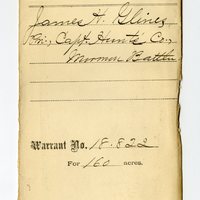 James H. Glines
Capt. Hunt's Co.,
Mormon Battn
Warrant No. 18.822
For 160 acres.